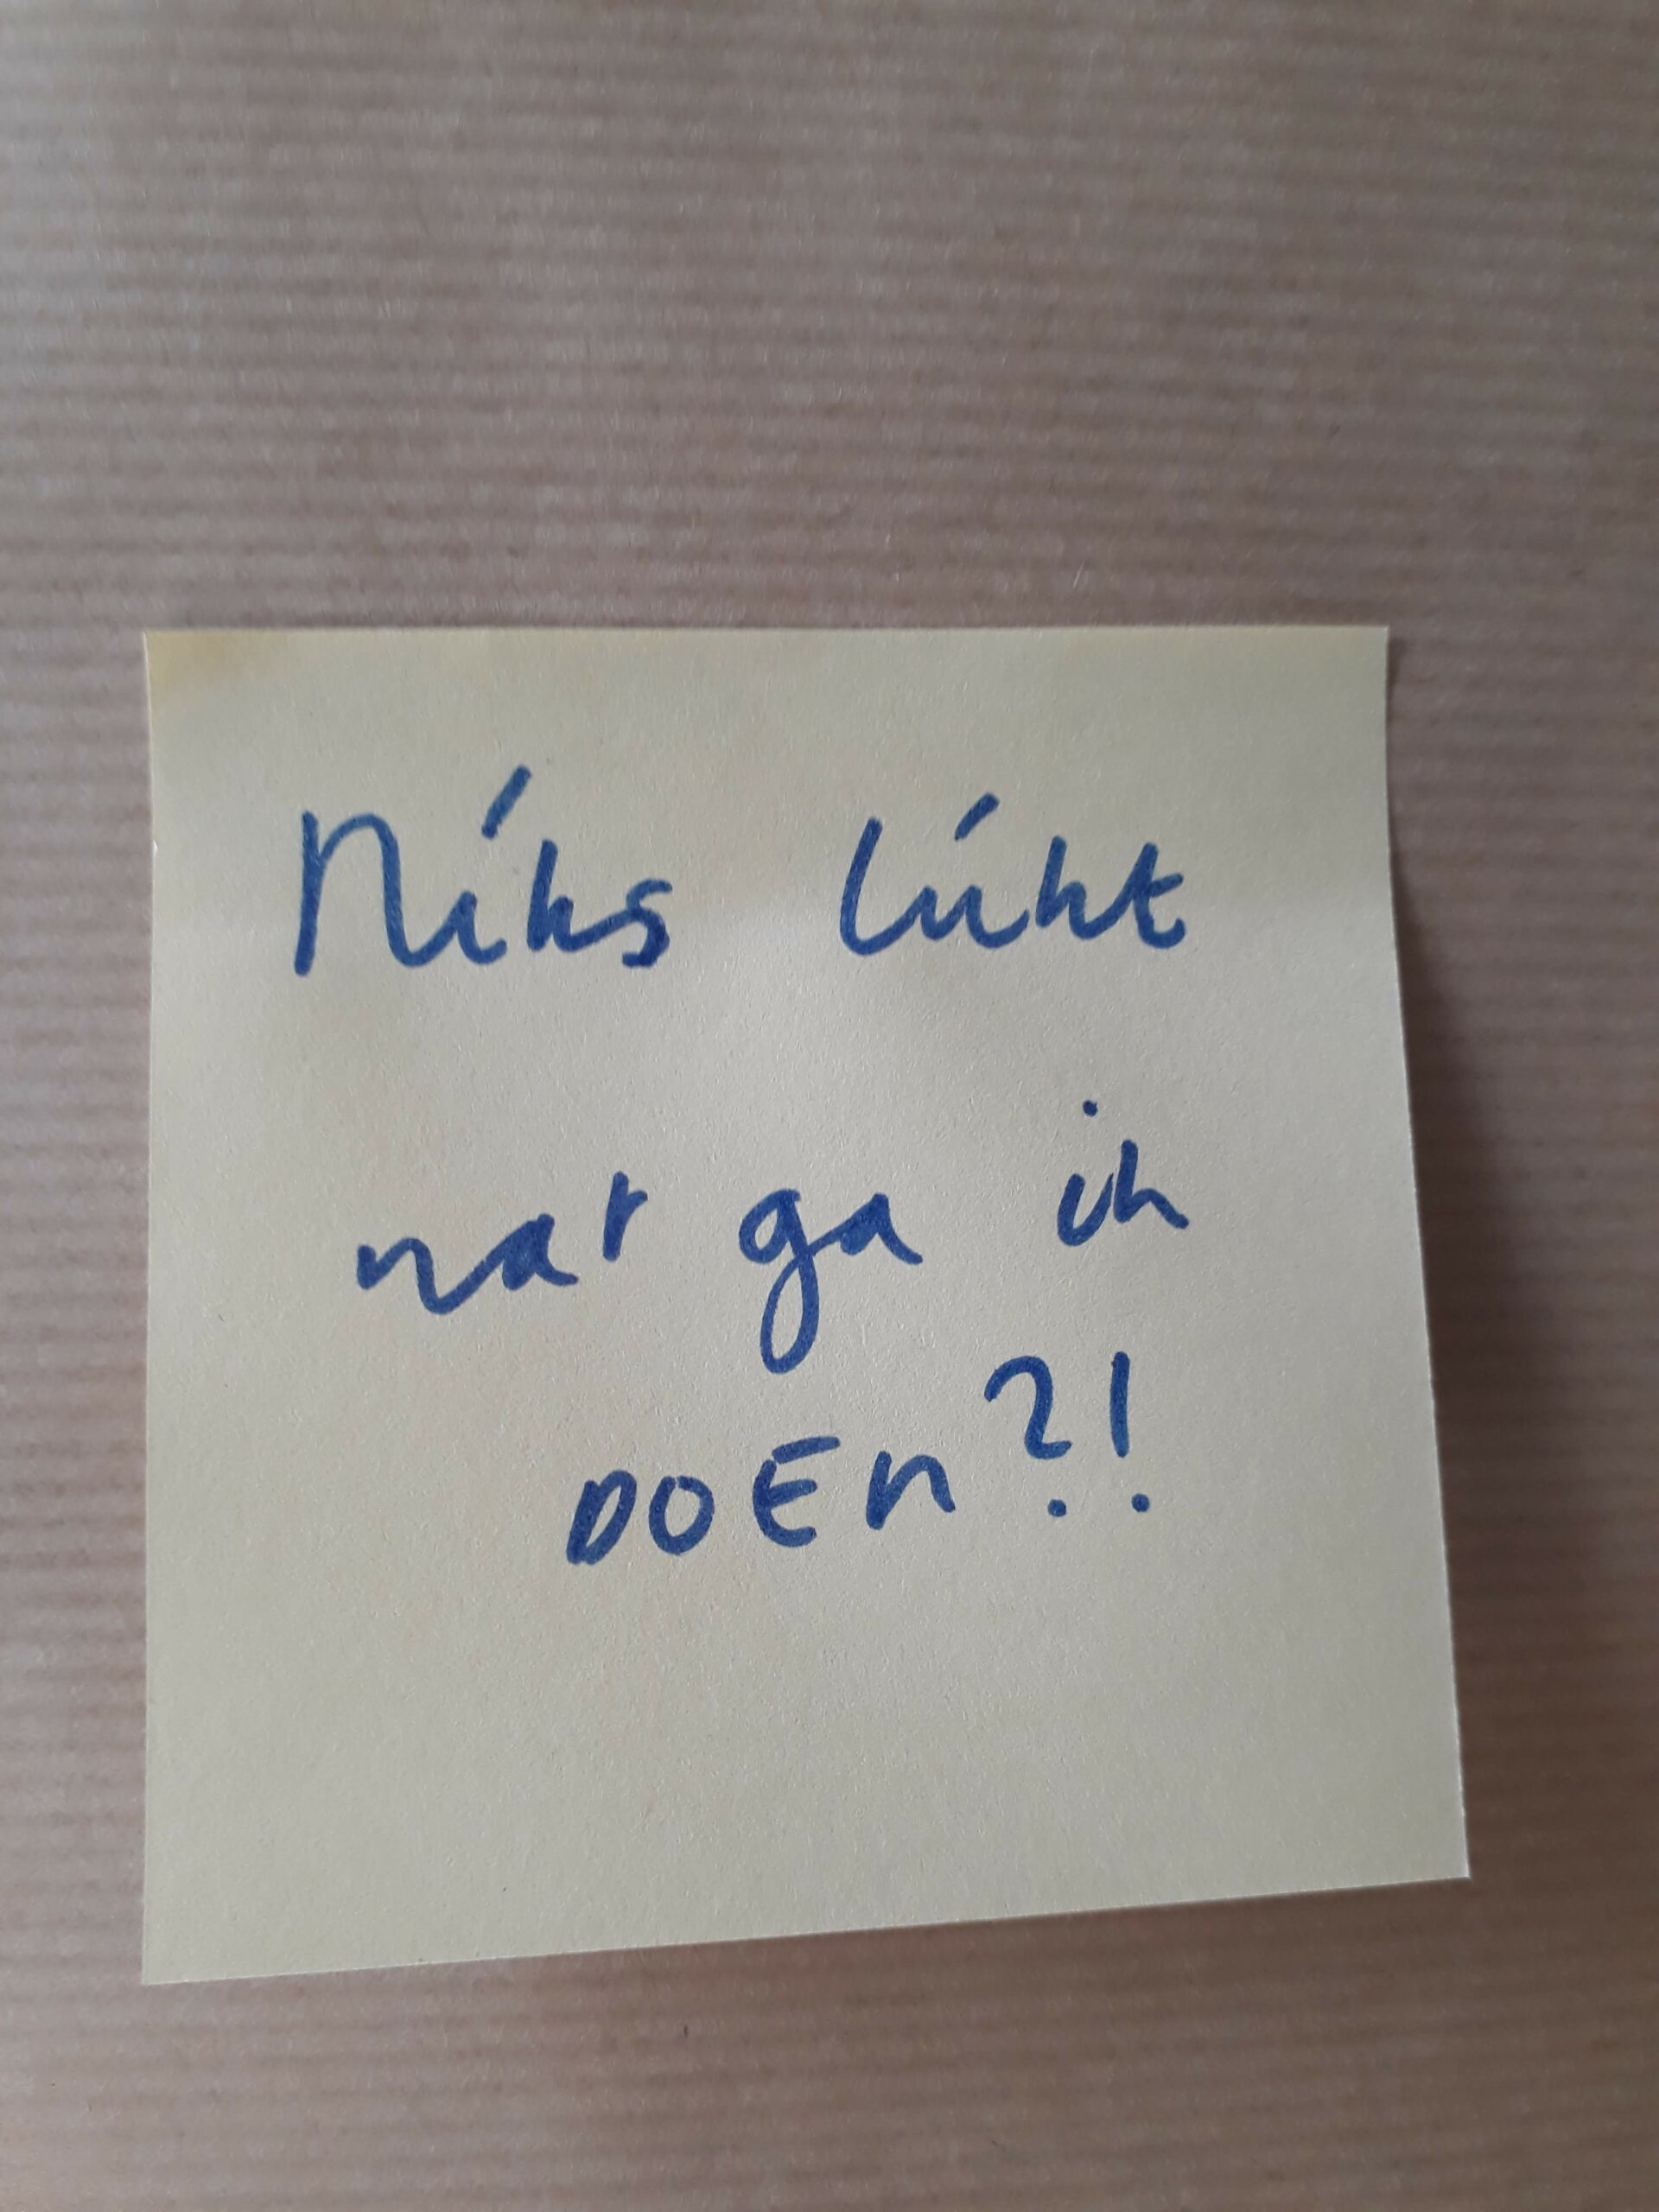 Niks lukt
wat ga ik
DOEn?!